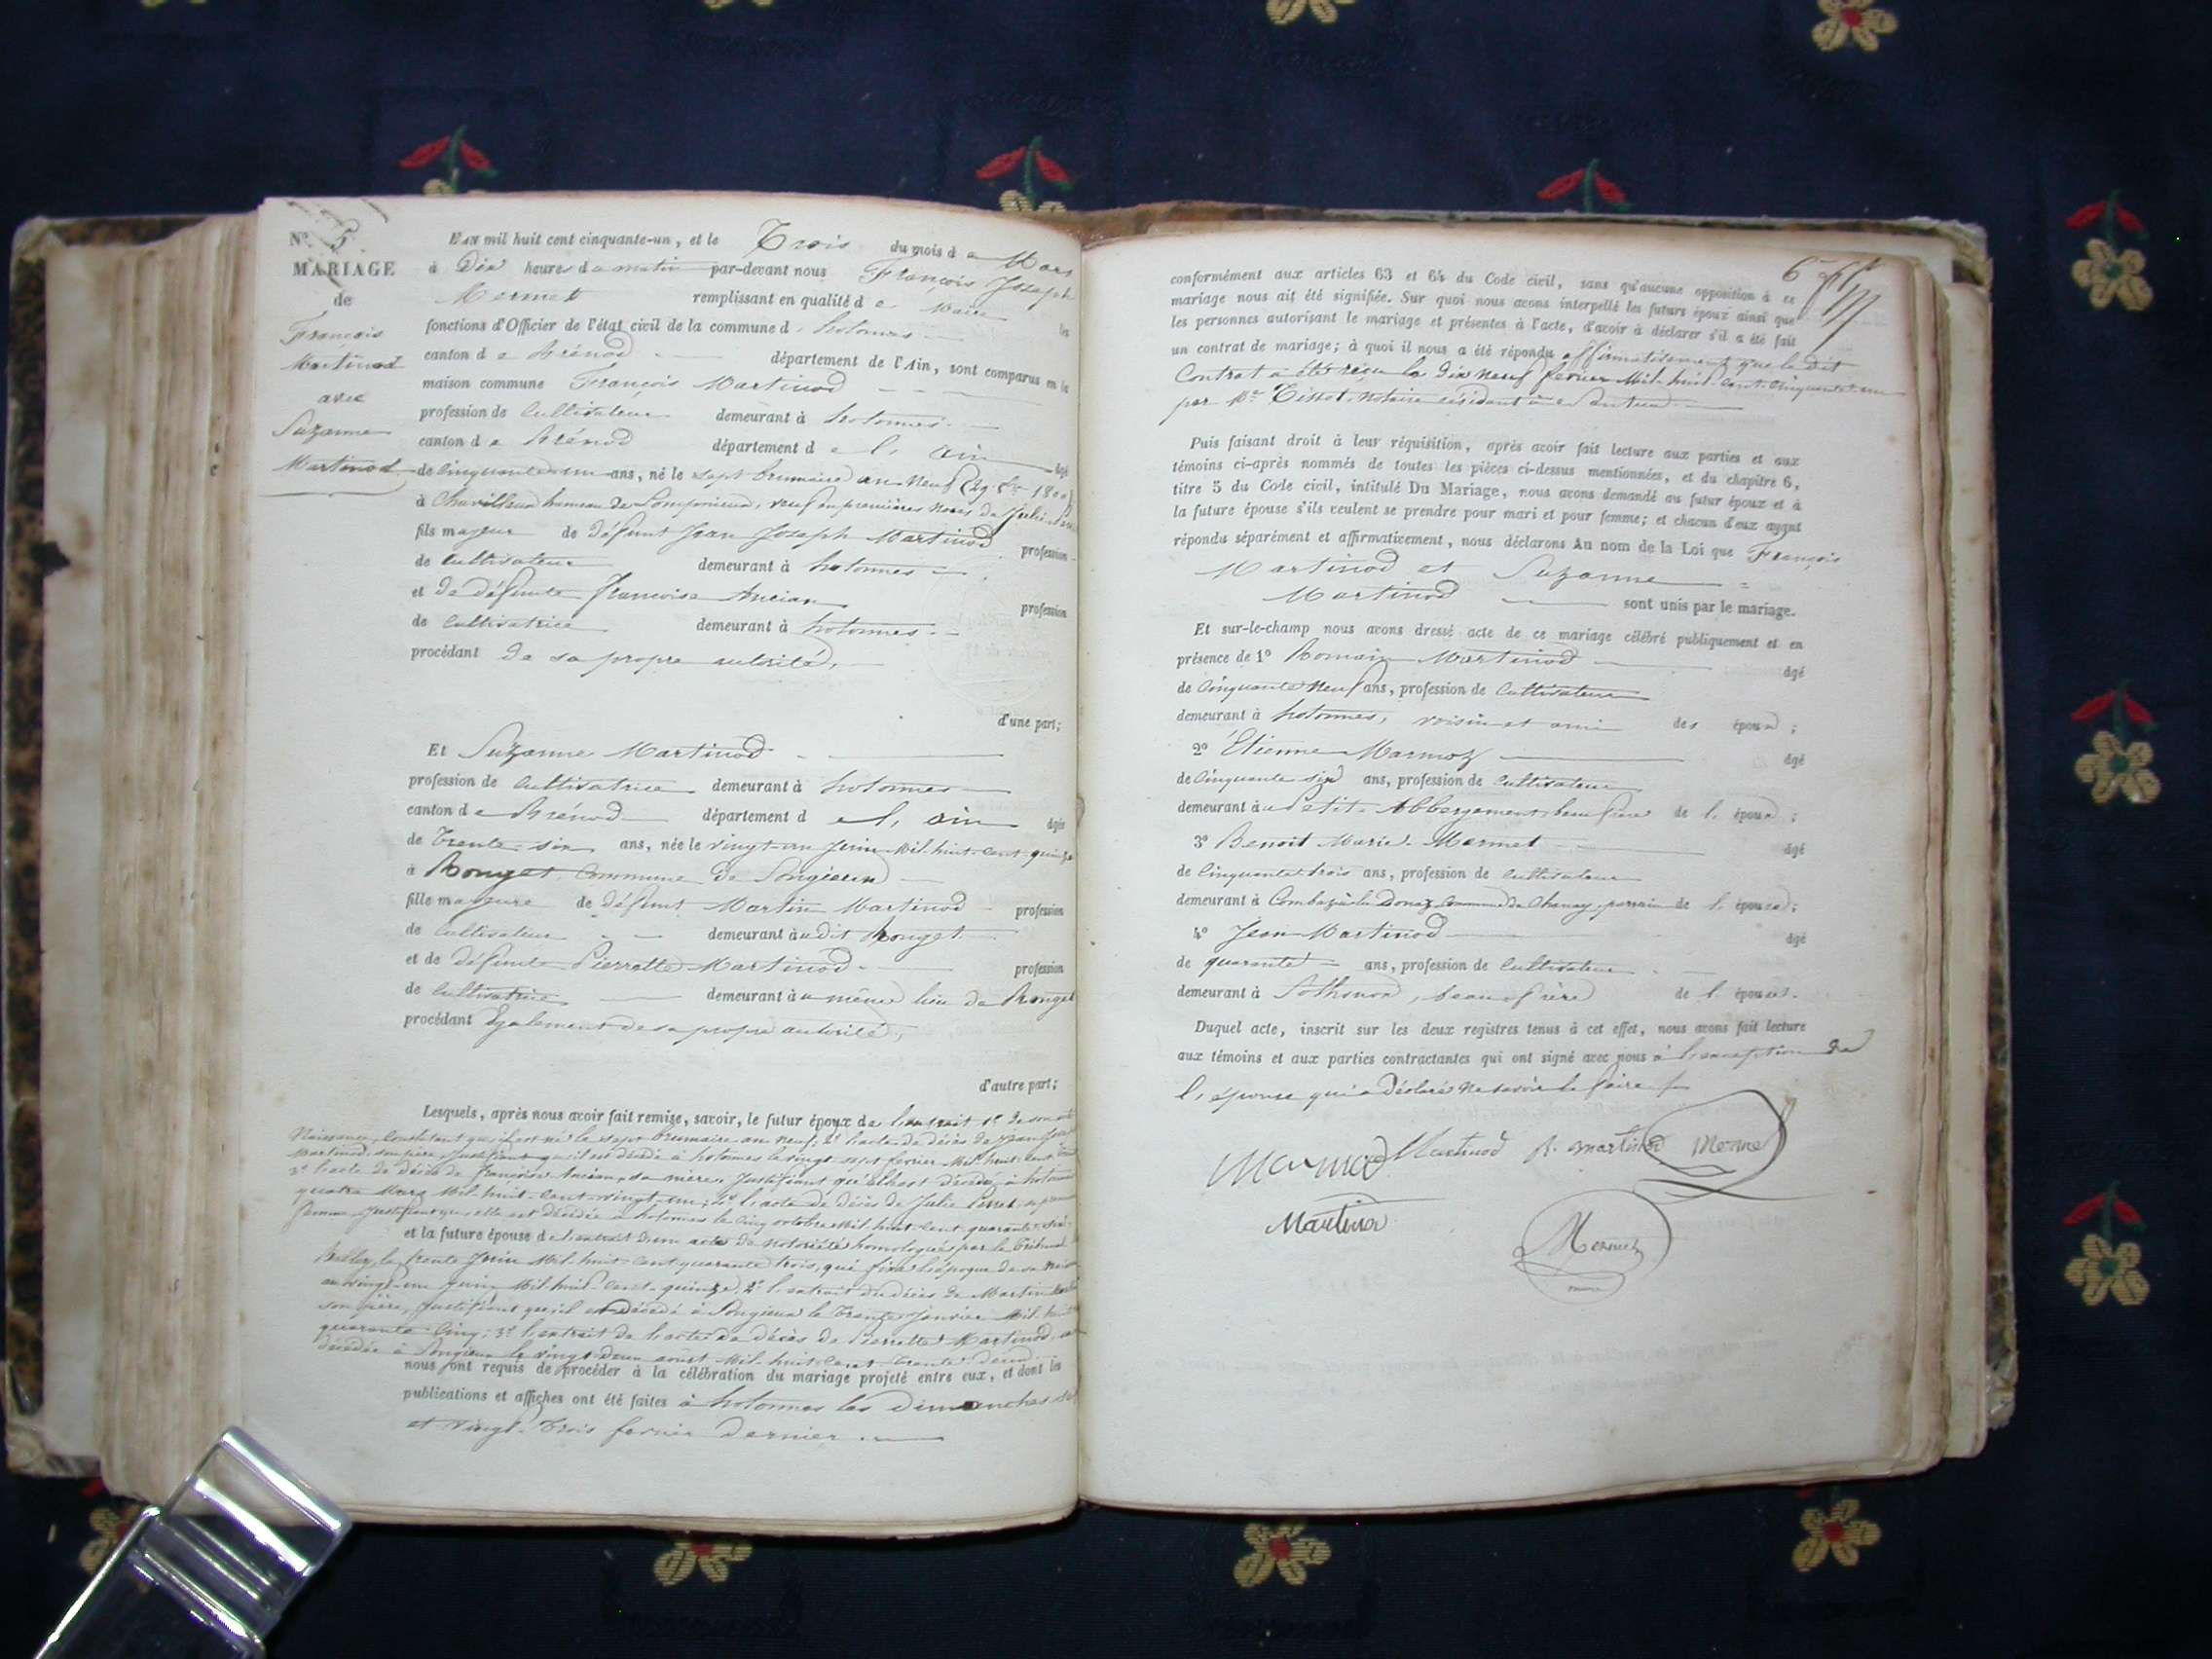 N° 5.
MARIAGE
de
François
Martinod
avec
Suzanne
Martinod
L'AN mil huit cent cinquante-un, et le Trois du mois de Mars
à Dix heures du matin par-devant nous François Joseph
Mermet remplissant en qualité de Maire les
fonctions d'Officier de l'état civil de la commune d'hotonnes
canton de Brénod département de l'Ain, sont comparus en la
maison commune François Martinod
profession de Cultivateur demeurant à hotonnes
canton de Brénod département de l'ain âgé
de Cinquante un ans, né le sept brumaire an Neuf (29 8bre 1800)
à Chavillieu hameau de Lompnieu, veuf en premières noces de Julie
fils majeur de défunt Jean Joseph Martinod profession
de cultivateur demeurant à hotonnes
et de défunte Françoise Ancian profession
de Cultivatrice demeurant à hotonnes
procédant de sa propre autorité,
d'une part;
Et Suzanne Martinod
profession de Cultivatrice demeurant à hotonnes
canton de Brénod département de l'ain âgée
de Trente-six ans, née le vingt-un juin Mil-huit-cent-quinze
à Rouget Commune de Songieu
fille majeure de défunt Martin Martinod profession
de Cultivateur demeurant audit Rouget
et de défunte Pierrette Martinod profession
de Cultivatrice demeurant au même lieu de Rouget
procédant Egalement de sa propre autorité,
d'autre part;
Lesquels, après nous avoir fait remise, savoir, le futur époux de l'extrait 1° de son
Naissance, Constatant qu'il est né le sept brumaire an neuf; 2° l'acte de décès de Jean
Martinod, son père, Justifiant qu'il est décédé à hotonnes le vingt-sept fevrier Mil-huit-cent
3° l'acte de décès de françoise Ancian, sa mère, Justifiant qu'elle est décédée à hotonnes
quatre Mars Mil-huit-cent-vingt-un; 4° l'acte de décès de Julie Perret sa
femme, Justifiant qu'elle est décédée à hotonnes le Cinq octobre Mil-huit-cent-quarante-six
et la future épouse de l'extrait d'un acte de notoriété homologué par le Tribunal
Belley, le trente Juin Mil-huit-cent-quarante trois, qui fixe l'époque de sa
au vingt-un juin Mil-huit-cent-quinze, 2° l'extrait du décès de Martin
son père, Justifiant qu'il est décédé à Songieu le Trente Janvier Mil-huit
quarante-Cinq; 3° l'extrait de l'acte de décès de Pierrette Martinod,
décédée à Songieu le vingt-deux août Mil-huit-cent-trente-deux
nous ont requis de procéder à la célébration du mariage projeté entre eux, et dont les
publications et affiches ont été faites à hotonnes les Dimanches
et Vingt-trois fevrier Dernier.
6
conformément aux articles 63 et 64 du Code civil, sans qu'aucune opposition à ce
mariage nous ait été signifiée. Sur quoi nous avons interpellé les futurs époux ainsi que
les personnes autorisant le mariage et présentes à l'acte, d'avoir à déclarer s'il a été fait
un contrat de mariage; à quoi il nous a été répondu affirmativement que le dit
Contrat a été reçu le Dix neuf fevrier Mil-huit-cent-cinquante-un
par Me Tissot, Notaire résidant à
Puis faisant droit à leur réquisition, après avoir fait lecture aux parties et aux
témoins ci-après nommés de toutes les pièces ci-dessus mentionnées, et du chapitre 6,
titre 5 du Code civil, intitulé Du Mariage, nous avons demandé au futur époux et à
la future épouse s'ils veulent se prendre pour mari et pour femme; et chacun d'eux ayant
répondu séparément et affirmativement, nous déclarons Au nom de la Loi que François
Martinod et Suzanne
Martinod sont unis par le mariage.
Et sur-le-champ nous avons dressé acte de ce mariage célébré publiquement et en
présence de 1° Romain Martinod âgé
de Cinquante Neuf ans, profession de Cultivateur
demeurant à hotonnes, voisin et ami des époux;
2° Etienne Marmoz âgé
de Cinquante six ans, profession de Cultivateur
demeurant au Petit-Abbergement beau frère de l'époux;
3° Benoit Marie Mermet âgé
de Cinquante trois ans, profession de Cultivateur
demeurant à Commune de Chanay, parrain de l'épouse;
4° Jean Martinod âgé
de quarante ans, profession de Cultivateur
demeurant à Sothonod, beau-frère de l'épouse.
Duquel acte, inscrit sur les deux registres tenus à cet effet, nous avons fait lecture
aux témoins et aux parties contractantes qui ont signé avec nous à l'exception de
l'épouse qui a Déclaré ne savoir le faire
Martinod R. martinod
Martinod
Mermet
maire